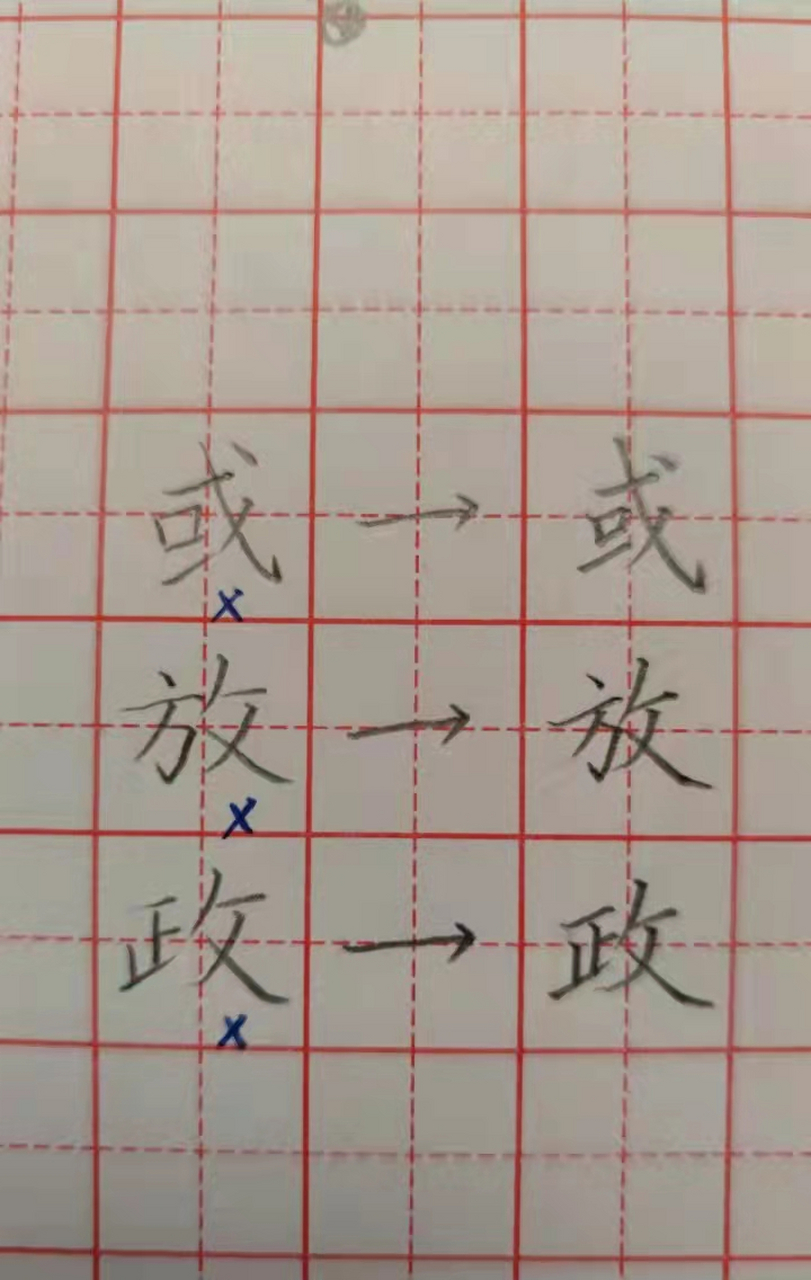 或 → 或
×
放 → 放
×
政 → 政
×